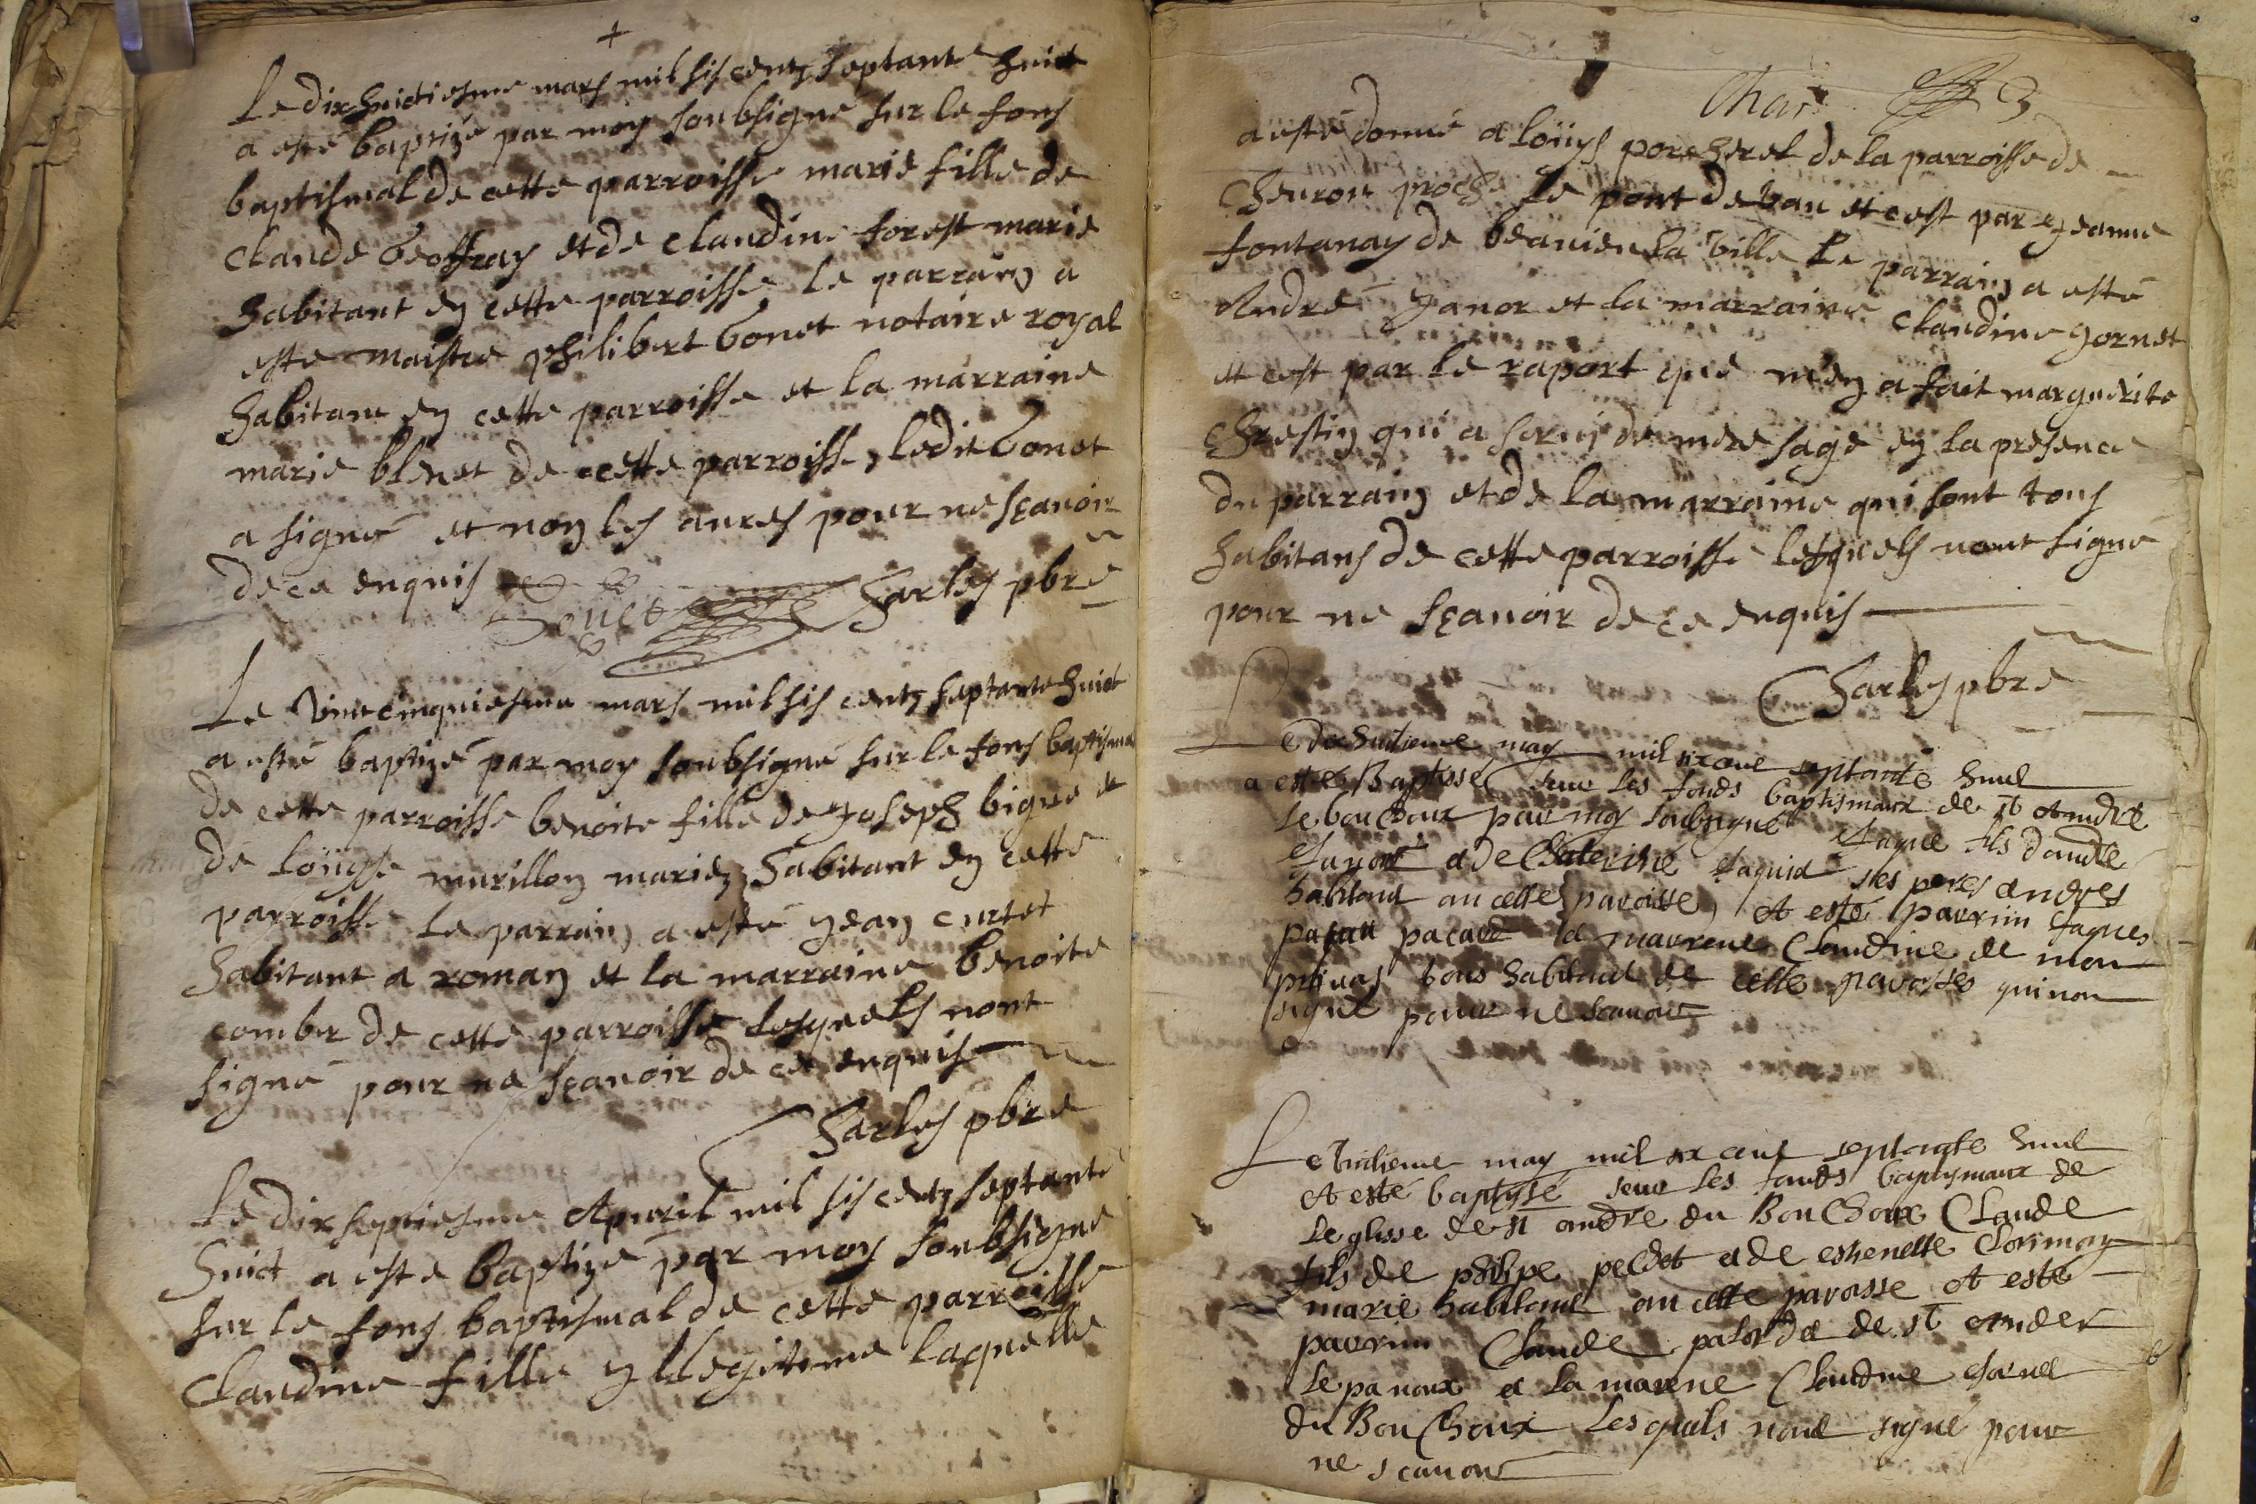 +
Le dixhuictiesme mars mil sis centz septante huict
a esté baptizé par moy soubsigné sur le fons
baptismal de cette parroisse marie fille de
claude Geoffray et de claudine forest marie
habitant en cette parroisse le parrain a
esté maistre philibert Gonet notaire royal
habitant en cette parroisse et la marraine
marie blenet de cette parroisse, ledit Gonet
a signé et non les autres pour ne sçavoir
de ce enquis Gonet Charles pbre
Le vintcinquiesme mars mil sis centz septante huict
a esté baptizé par moy soubsigné sur le fons baptismal
de cette parroisse benoite fille de Joseph bigue et
de loüyse murillon mariez habitant en cette
parroisse le parrain a esté Jean curtet
habitant a roman et la marraine benoite
combet de cette parroisse lesquels nont
signé pour ne sçavoir de ce enquis
Charles pbre
Le dix septiesme Apuril mil sis centz septante
huict a esté baptizé par moy soubsigné
sur le fons baptismal de cette parroisse
Claudine fille yllegitime laquelle
Char
a esté donné a loüys porcherel de la parroisse de
Cheuron proche le pont de vau et cest par Jeanne
fontanay de beauieu la ville le parrain a esté
André Janor et la marraine claudine Jornet
et cest par le raport que m'en a fait marguerite
Chrestin qui a seruy de mere sage en la presence
du parrain et de la marraine qui sont tous
habitans de cette parroisse lesquels nont signé
pour ne sçauoir de ce enquis
Charles pbre
Le dix huitieme may mil six cent septante huict
a esté Baptissé seur les fonds baptismaux de st Andre
le bouchoux par moy soubsigné Jaque fils dandre
et de Caterine Jaquid ses peres
habitant an celle paroisse, At esté parrin Jaques
pacau la marrene Claudine de mon
tous habitant de celle paroisse qui non
signé pour ne scauoir
Le huitieme may mil six cent septante huict
At esté baptyssé seur les fonds baptysmaux de
Leglisse de st andre du Bouchoux Claude
fils de philipe pechet et de estienette
marie habitant an celle paroisse At esté
parrin Claude de st andre
le panoux et la marene Claudine Jornet
du Bouchoux Lesquels nont signé pour
ne scauoir